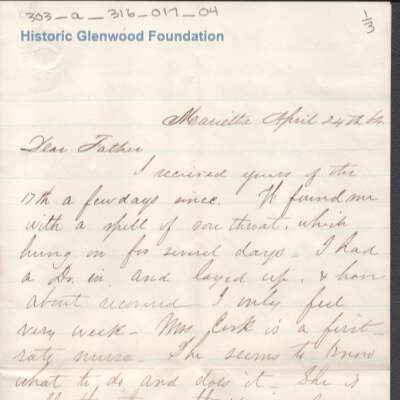 303-a-316-017-04
1/3
Historic Glenwood Foundation
Marietta April 24th 64.
Dear Father
I received yours of the
17th a few days since. It found me
with a spell of sore throat, which
hung on for several days - I had
a Dr. in, and layed up, & have
about recovered I only feel
very weak - Mrs Cook is a first
rate nurse - She seems to know
what to do, and does it - She is